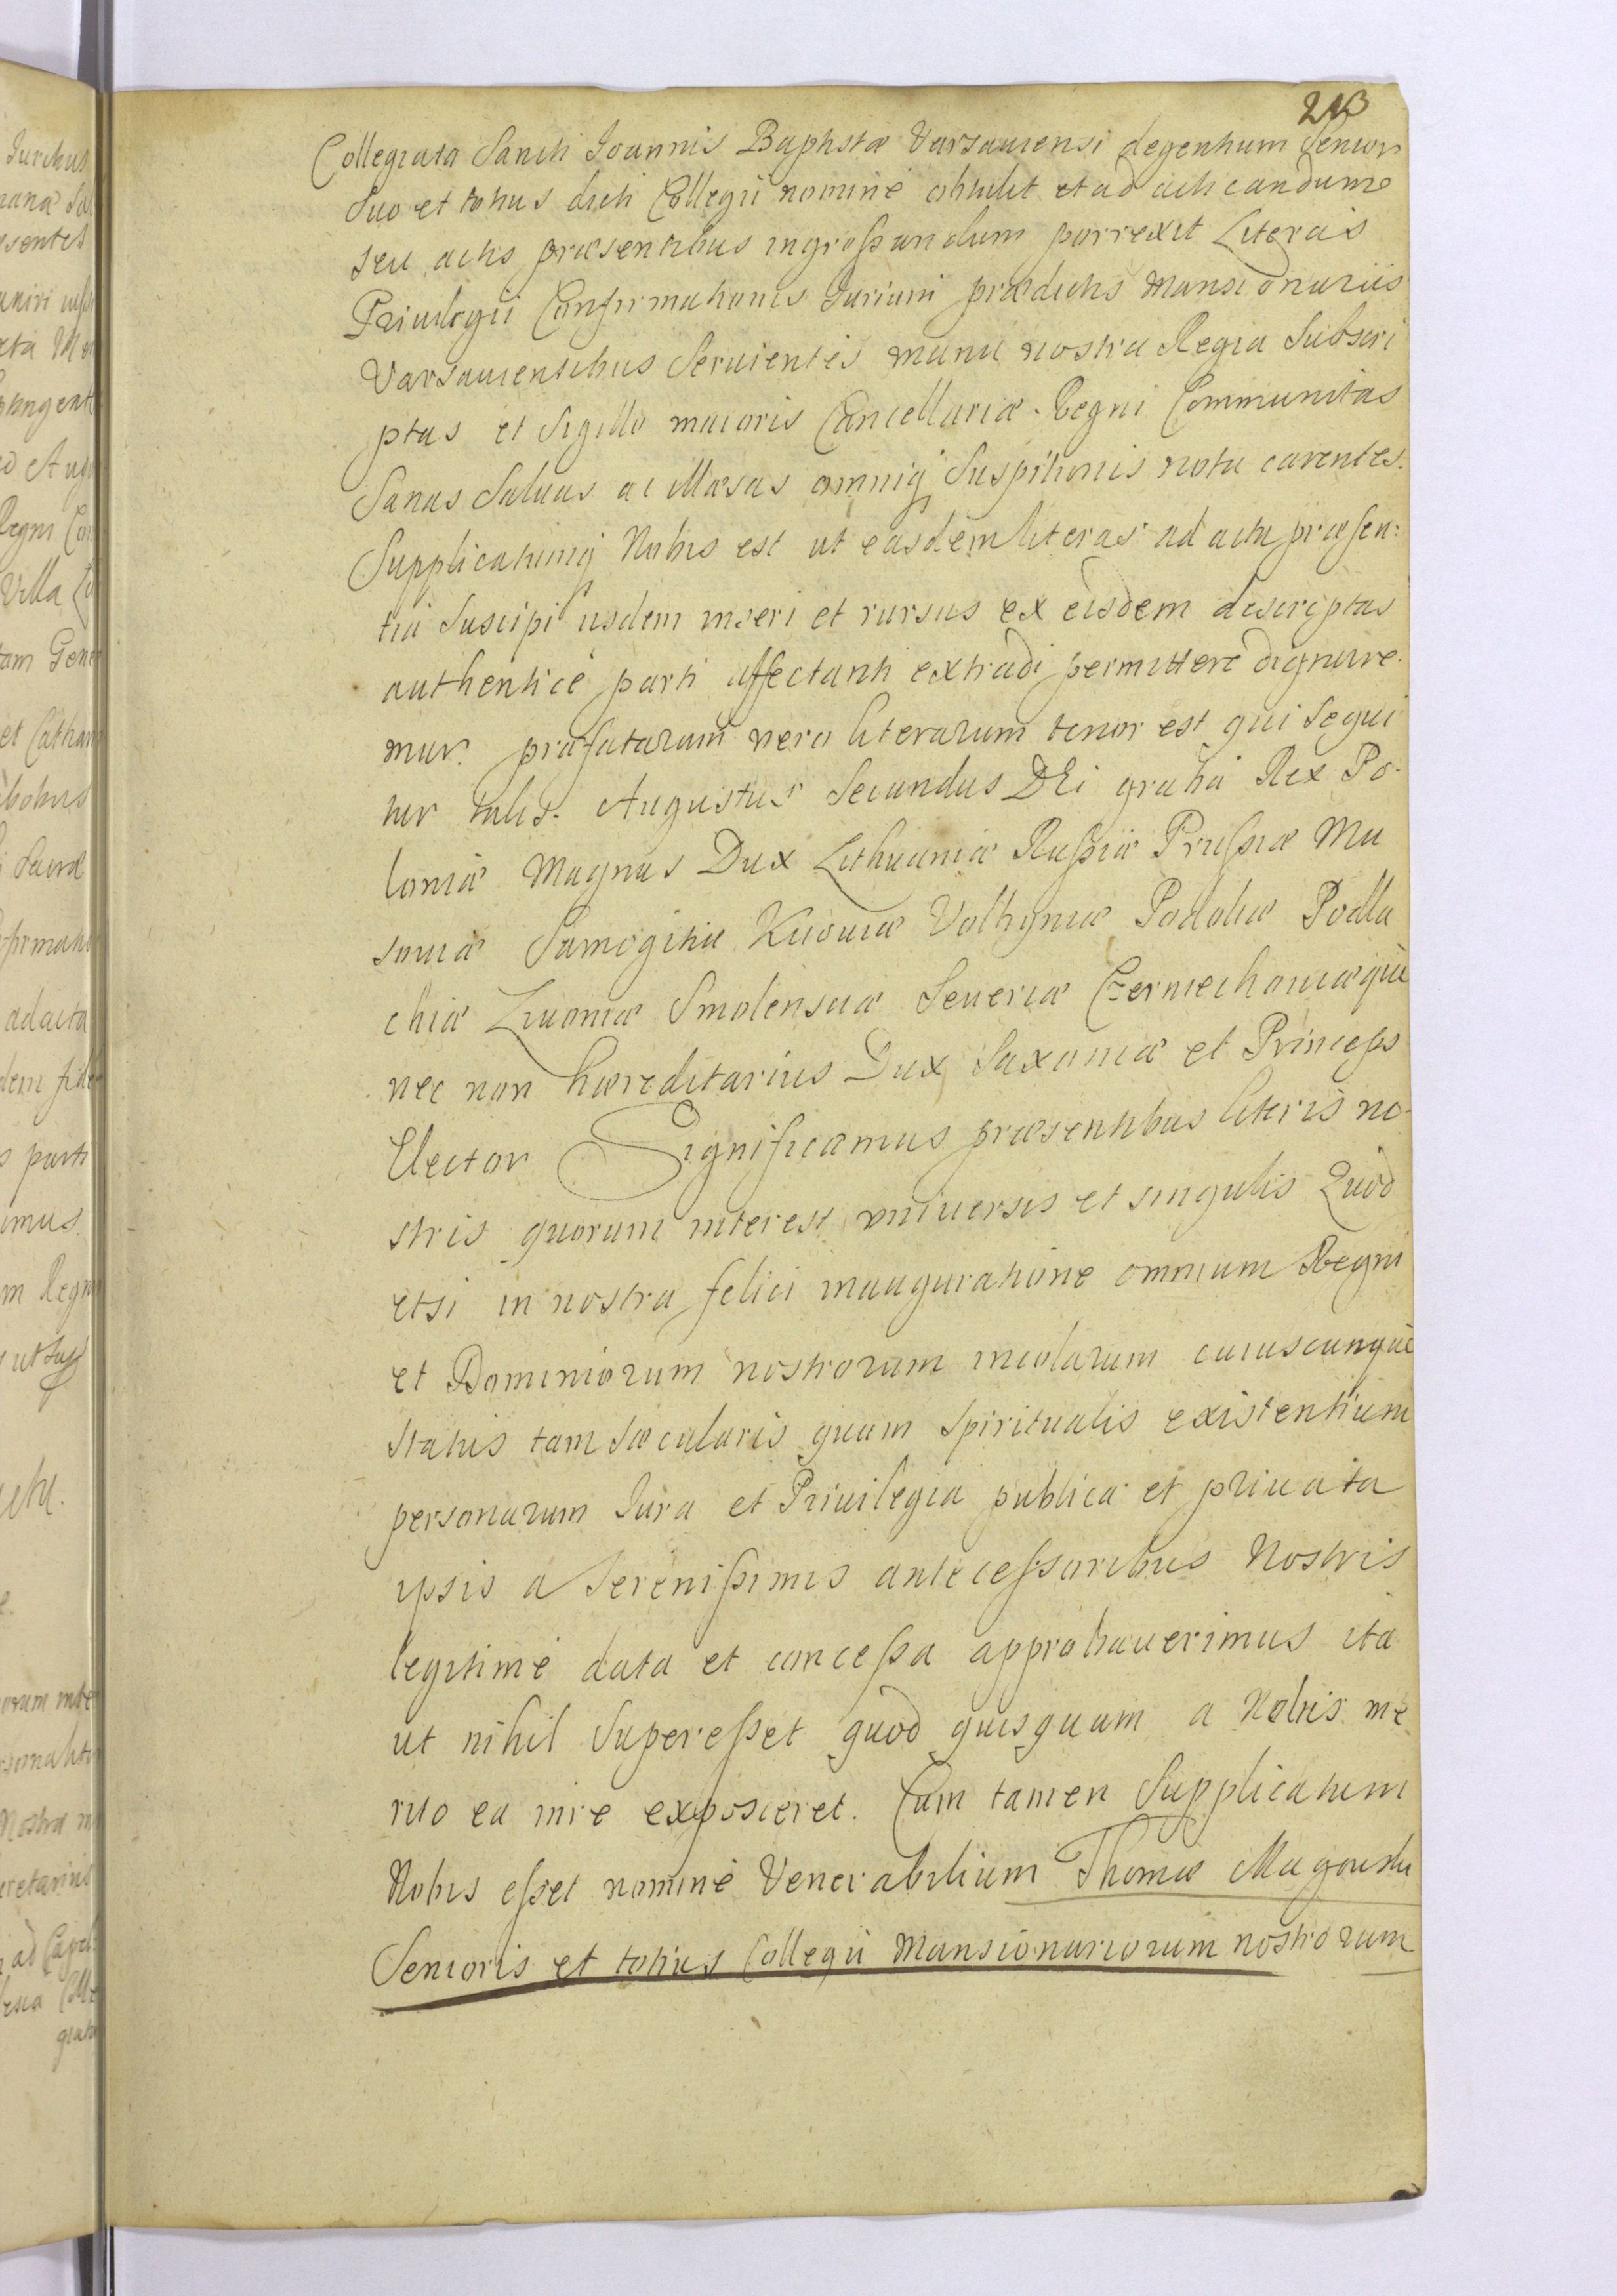 213
Collegiata Sancti Ioannis Baptistæ Varsauiensi degentium Senior
Suo et totius dicti Collegii nominé obtulit et ad acticandum
seu actis præsentibus ingroſsandum porrexit Literas
Priuilegii Confirmationis Iurium prædictis Mansionariis
Varsauiensibus Seruientes manu nostra Regia Subscri
ptas et Sigillo maioris Cancellariæ Regni Communitas
Sanas Saluas ac illæsas omniq Suspitionis nota carentes.
Supplicatumq Nobis est ut easdem literas ad acta præsen:
tia Suscipi iisdem inseri et rursus ex eisdem descriptas
authenticè parti affectanti extradi permittere dignare
mur. præfatarum vero literarum tenor est qui Sequi
tur talis. Augustus Secundus DEi gratiâ Rex Po
loniæ Magnus Dux Lithuaniæ Ruſsiæ Pruſsiæ Ma
souiæ Samogitiæ Kiiouiæ Volhyniæ Podoliæ Podla
chiæ Liuoniæ Smolensciæ Seueriæ Czerniechouiæquè
nec non hæreditarius Dux Saxoniæ et Princeps
Elector Significamus præsentibus literis no
stris quorum interest vniuersis et singulis Quod
etsi in nostra felici inauguratione omnium Regni
et Dominiorum nostrorum incolarum cuiuscunquè
Status tam sæcularis quam Spiritualis existentium
personarum Iura et Priuilegia publica et priuata
ipsis a Sereniſsimis anteceſsoribus Nostris
legitimè data et conceſsa approbauerimus ita
ut nihil Supereſset quod quisquam a Nobis me
rito ea in re exposceret. Cum tamen Supplicatum
Nobis eſset nominè Venerabilium Thomæ Magouski
Senioris et totius Collegii Mansionariorum nostrorum